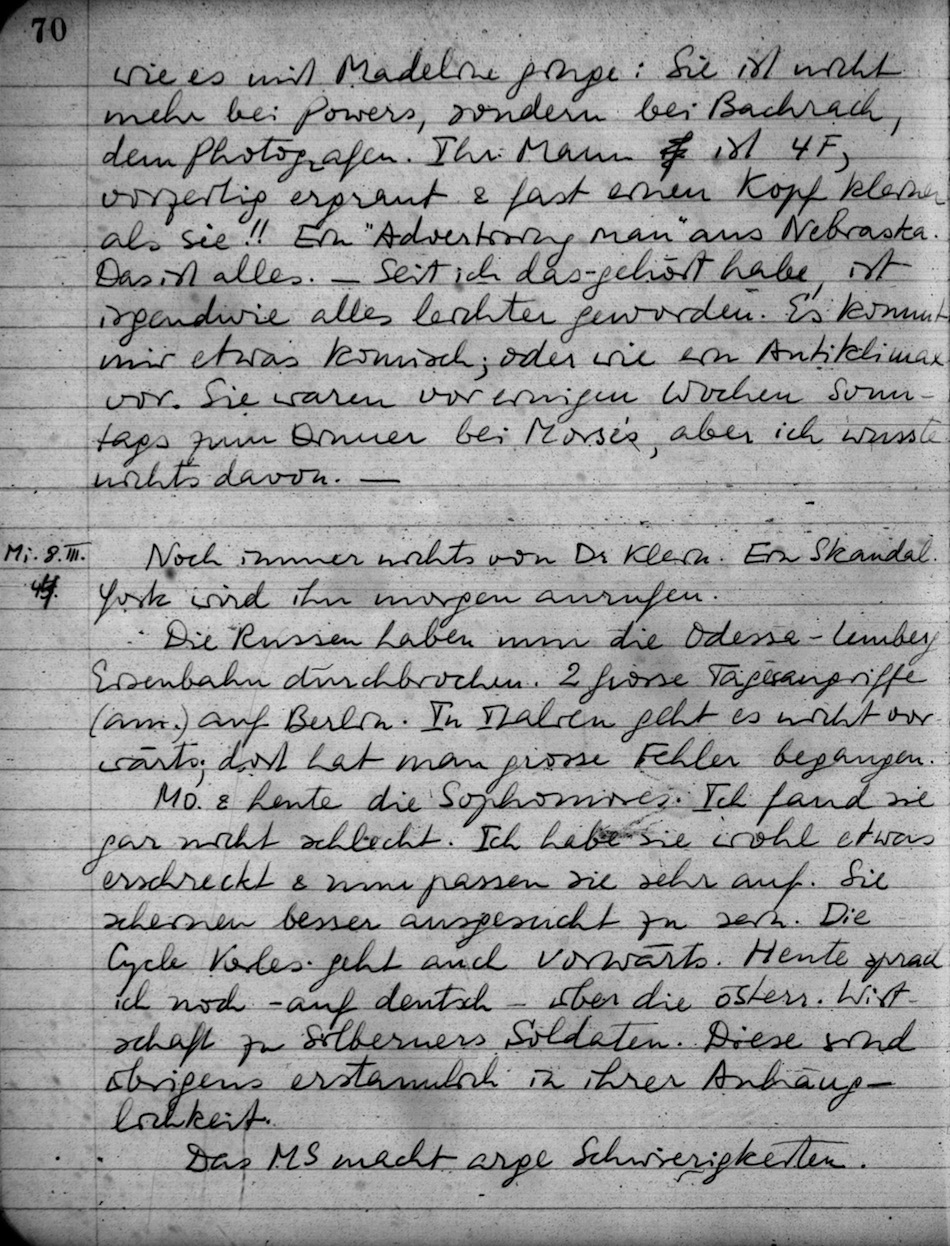 70
wie es mit Madeline ginge: Sie ist nicht
mehr bei Powers, sondern bei Bachrach,
dem Photografen. Ihr Mann ist 4F,
vorzeitig ergraut & fast einen Kopf kleiner
als sie!! Ein "Advertising man" aus Nebraska.
Das ist alles. — Seit ich das gehört habe, ist
irgendwie alles leichter geworden. Es kommt
mir etwas komisch, oder wie ein Antiklimax
vor. Sie waren vor einigen Wochen Sonn-
tags zum Dinner bei Morse's, aber ich wusste
nichts davon. —
Mi. 8. III.
44.
Noch immer nichts von Dr Klein. Ein Skandal.
York wird ihn morgen anrufen.
Die Russen haben nun die Odessa-Lemberg
Eisenbahn durchbrochen. 2 grosse Tagesangriffe
(am.) auf Berlin. In Italien geht es nicht vor-
wärts; dort hat man grosse Fehler begangen.
Mo. & heute die Sophomores. Ich fand sie
gar nicht schlecht. Ich habe sie wohl etwas
erschreckt & nun passen sie sehr auf. Sie
scheinen besser ausgesucht zu sein. Die
Cycle geht auch vorwärts. Heute sprach
ich noch - auf deutsch - über die österr. Wirt-
schaft zu Silberners Soldaten. Diese sind
übrigens erstaunlich in ihrer Anhäng-
lichkeit.
Das MS macht arge Schwierigkeiten.